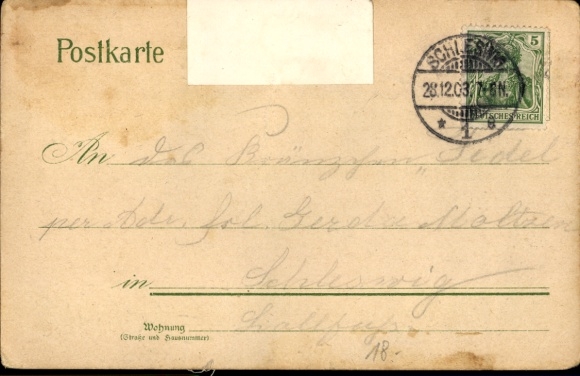 Postkarte
SCHLESWIG
5
28.12.03. 7-8N.
* 1 e
DEUTSCHES REICH
An das Kränzchen „Fidel“
per Adr. frl. Gerda Moltzen
in Schleswig
Wohnung
(Straße und Hausnummer)
18.-